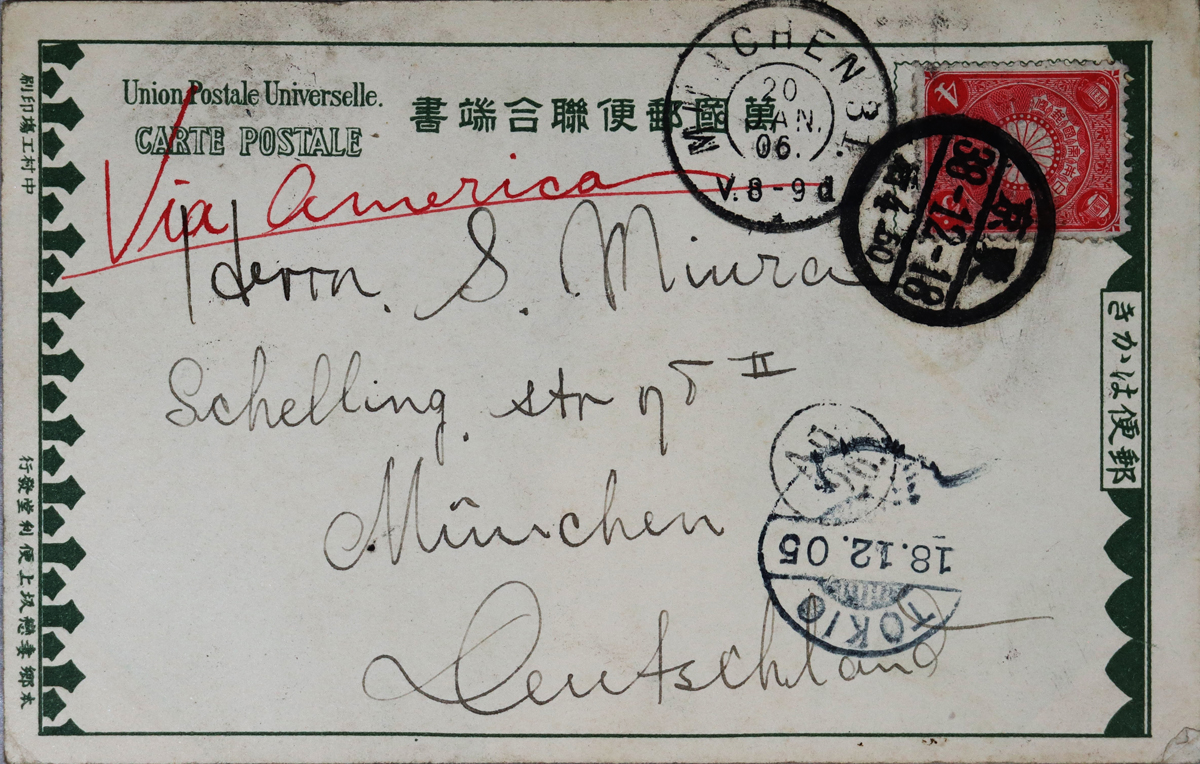 Union Postale Universelle.
CARTE POSTALE
書端合聯便郵國萬
Via America
Herrn. S. Miura
Schelling str 75 II
München
Deutschland
MÜNCHEN 31.
20
JAN.
06.
V.8-9
東京
38-12-18
后4-50
TOKIO
18.12.05
きかは便郵
中村工塲印刷